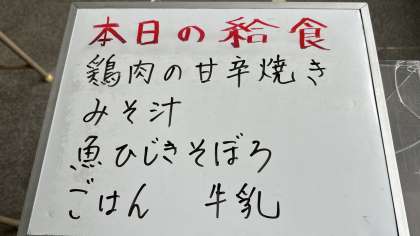 本日の給食
鶏肉の甘辛焼き
みそ汁
魚ひじきそぼろ
ごはん 牛乳